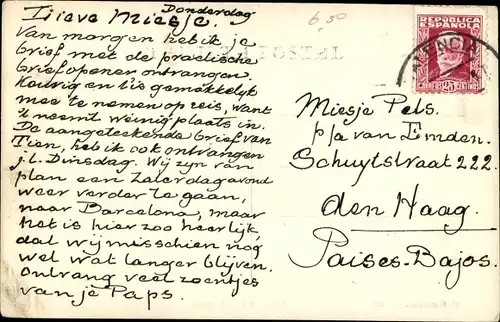 Donderdag
Lieve Miesje.
Van morgen heb ik je
brief met de practische
briefopener ontvangen.
Keurig en 't is gemakkelijk
mee te nemen op reis, want
't neemt weinig plaats in.
De aangeteekende brief van
Tien, heb ik ook ontvangen
j.l. Dinsdag. Wij zijn van
plan een Zaterdagavond
weer verder te gaan,
naar Barcelona, maar
het is hier zoo heerlijk,
dat wij misschien nog
wel wat langer blijven.
Ontvang veel zoentjes
van je Paps.
6,50
REPUBLICA
ESPAÑOLA
25
VALENCIA
Miesje Pels.
p/a van Emden.
Schuytstraat 222.
den Haag.
Paises-Bajos.